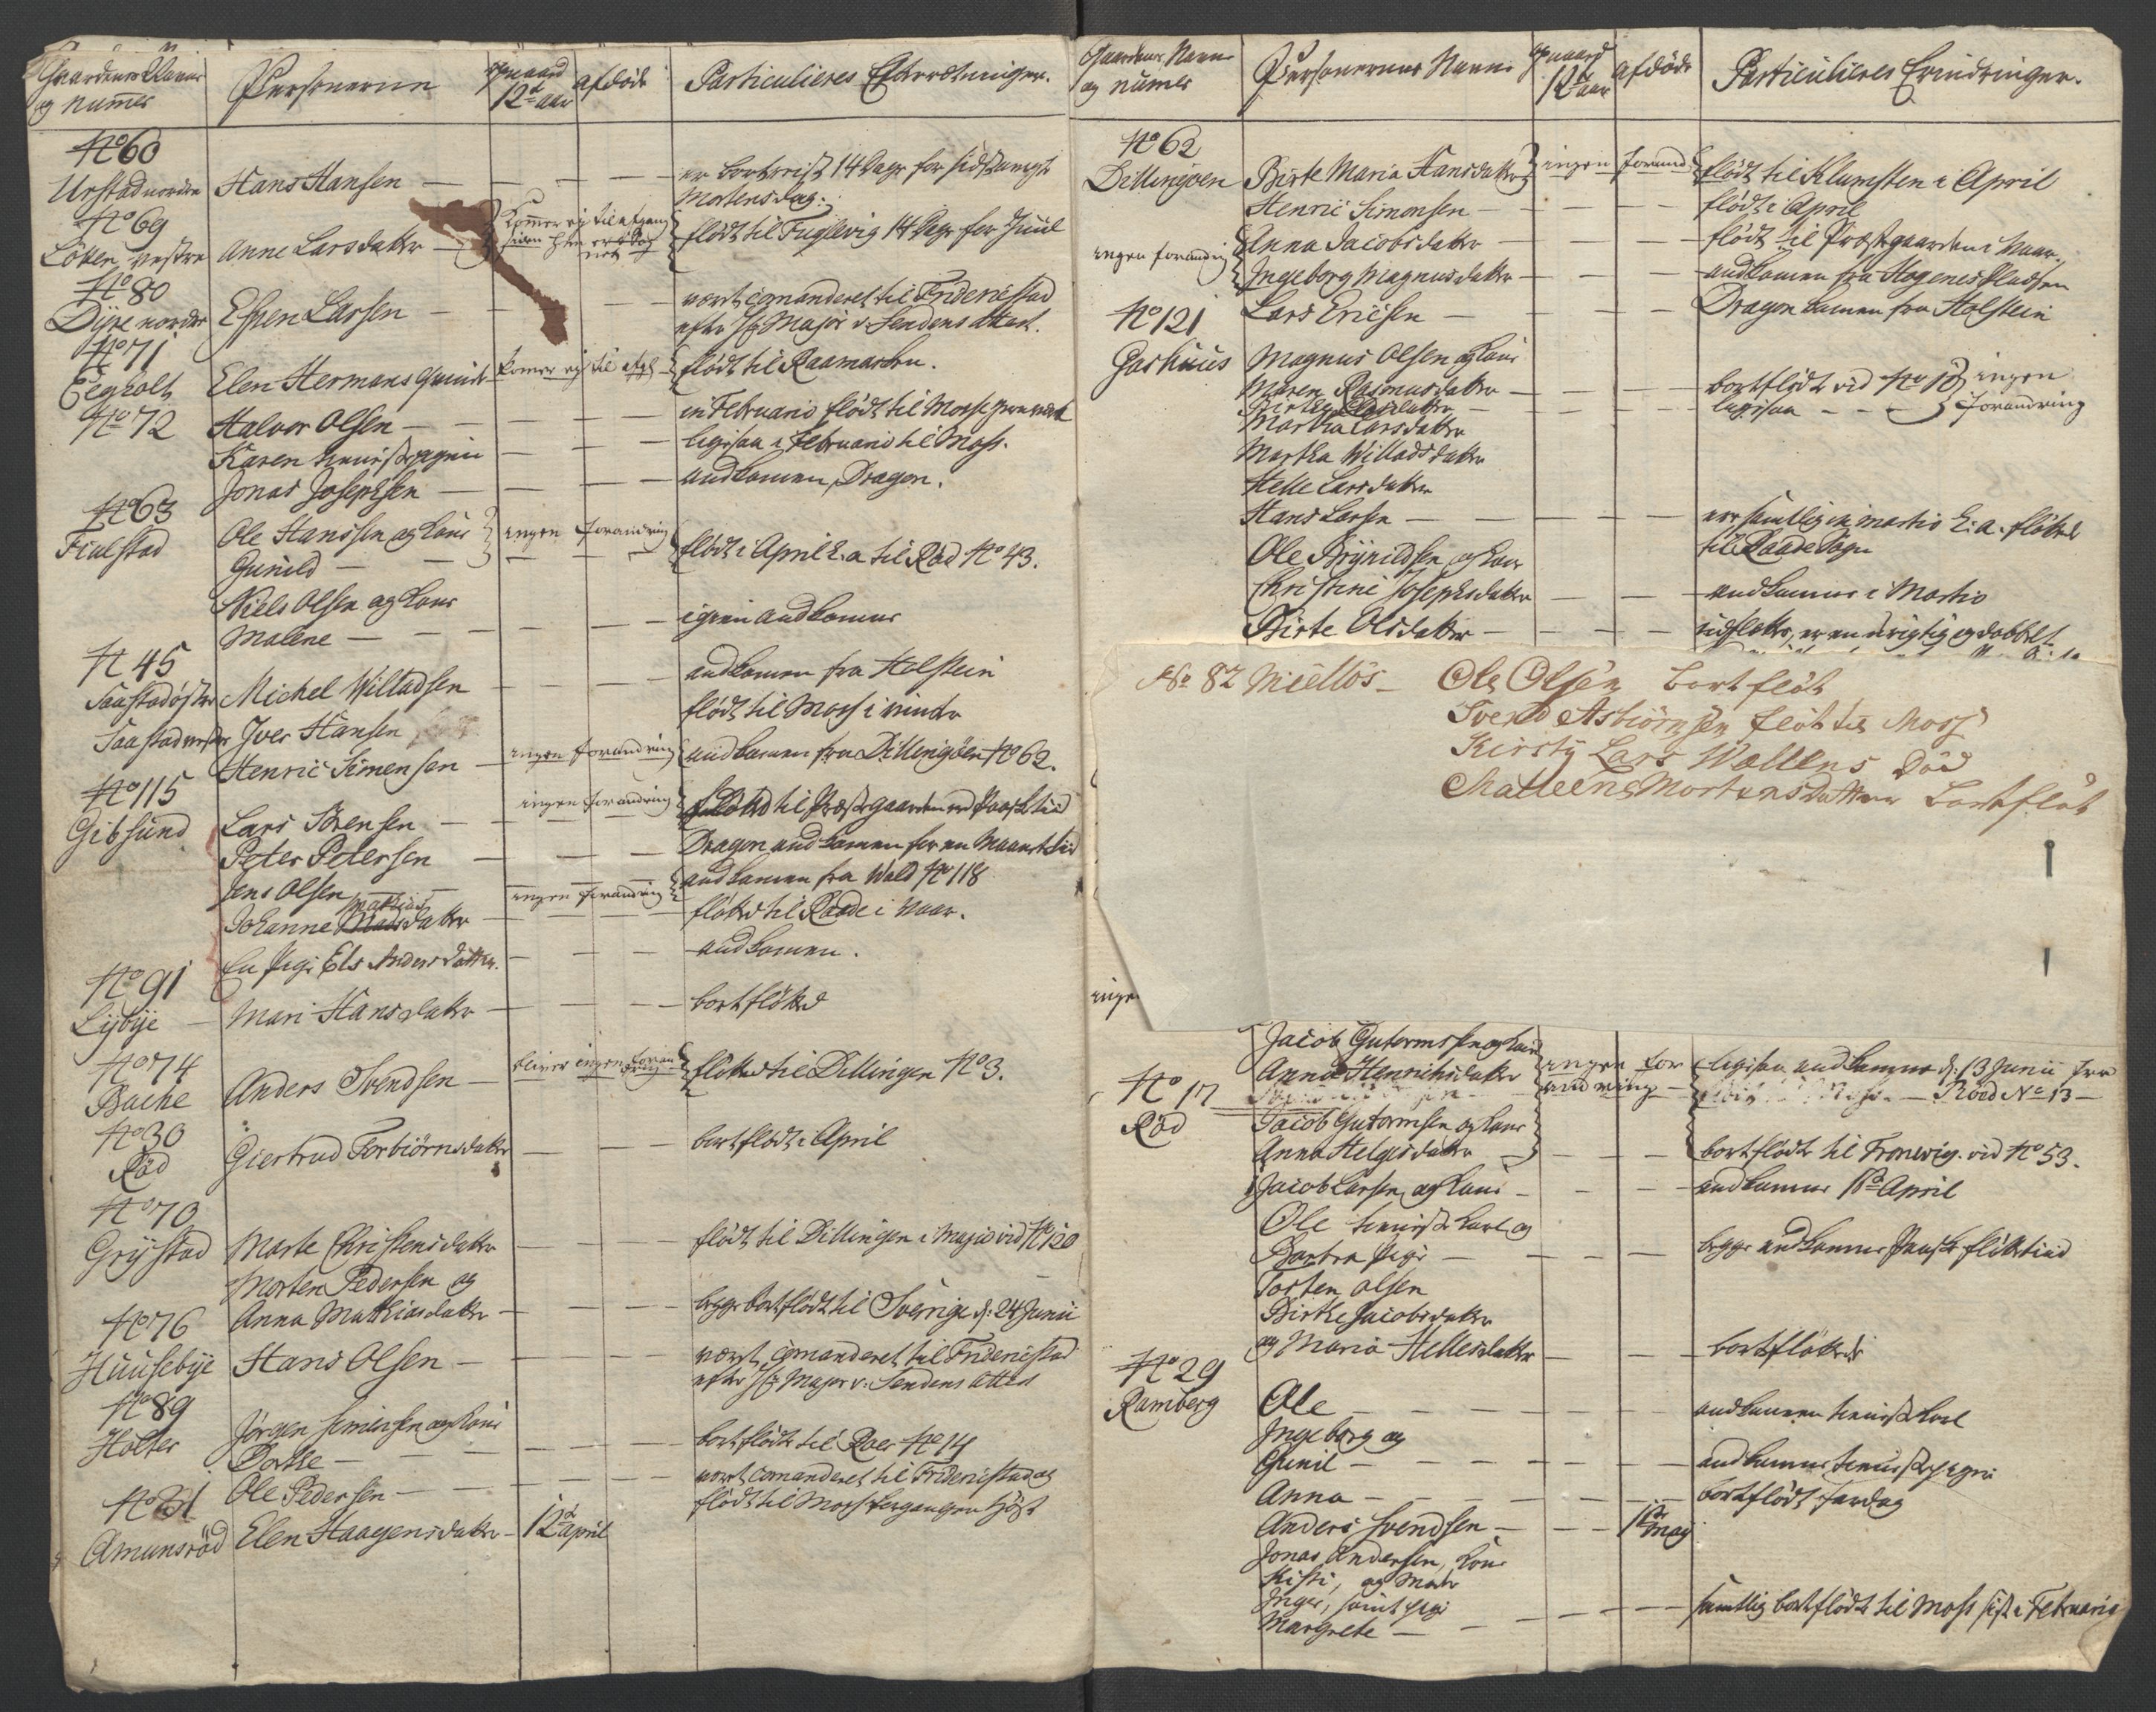 Gaardenes Navne og numer | Personerne | opnaaed 12te aar | afdöde | Particulieres Efterretninger.
No 60
Urstad nordre Hans Hansen — — — — er bortreist 14 Dage for sidst
Mortensdag.
No 69
Löken vestre Anne Larsdatter — Kommer ej til afgang siden flödt til Fuglevig 14 Dage for Juul
No 80
Dyre nordre Espen Larsen — — — — vært comanderet til Fridericstad
efter Hr Major v. Lendens attest.
No 71
Eegholt Elen Hermans komer ej til afg flödt til Raamarken.
No 72 Halvor Olsen — — — — in Februario flödt til Mosse
Karen — — — ligesaa i Februario til Moss.
Jonas Josephsen — — — — andkomen, Dragon.
No 63
Fiulstad Ole Hanssen og Kone
Gunild — — ingen forandring flödt i April h.a. til Röd No 43.
Niels Olsen og Kone
Malene — — — — — igien andkomne
N 45
Saastad öster Michel Willadsen — — — — andkomen fra Holstein
Saastad vester Iver Hansen flödt til Moss i vinter
Henric Simensen — ingen forandring andkomen fra Dillingöen No 62.
No 115
Gibsund Lars Sörensen — ingen forandring flötted til Præstegaarden ved Paaske tiid
Peter Petersen — — — — Dragon andkomen for en Maanets tid
Jens Olsen — ingen forandring andkomen fra Wald No 118
Mathias
Johanne Madsdatter — flötted til Raade i Vaar.
En Pige Els Andersdatter — — — — andkomen.
No 91
Lybye — Mari Hansdatter — — — — bortflötted
No 74
Bache Anders Svendsen — bliver ingen forandring flötted til Dillingen No 3.
No 30
Röd Giertrud Torbiörnsdatter — — — bortflödt i April
No 70
Grystad Marte Christensdatter — — — — flödt til Dillingen i Majo vid No 120
Morten Pedersen og
Anna Mathiasdatter — — — — begge bortflödt til Sverige d. 24 Junii
No 76
Huusebye Hans Olsen — — — — vært comanderet til Fridericstad
efter Hr Major v. Lendens attest
No 89
Holter Jörgen Simensen og Kone
Dorthe — — — — bortflödt til Roer No 14
Ole Pedersen — — — — vært comanderet til Fridericstad og
No 81 flödt til Moss forgangen Höst
Amunsröd Elen Haagensdatter — 12te april
Gaardenes Navne og numer | Personernes Navne | opnaaed 12te aar | afdöde | Particulieres Erindringer.
No 62
Dillingöen Birte Maria Hansdatter ingen forand flödt til Klumsten i April
Henric Simonsen — — — — flödt i April
ingen forandring Anna Jacobsdatter — — — — flödt til Præstegaarden i Vaar.
Ingeborg Magnusdatter — — — — andkomen fra Hogenes Pladsen
No 121 Lars Ericsen — — — — Dragon komen fra Holstein
Gashuus Magnus Olsen og Kone
Maren Rasmusdatter — — — — bortflödt vid No 18 ingen
Kirsten Larsdatter — — — — ligesaa — — forandring
Martha Larsdatter
Martha Willadsdatter
Helle Larsdatter
Hans Larsen — — — — ere samtlig in martio h: a. flötted
til Raade Sogn
Ole Brynildsen og Kone
Christine Josephsdatter — — — andkomne i Martio
Birte Olsdatter — — — — udflötter, er en urigtig og dobbelt
No 82 Miellös — Ole Olsen bortflöt
Svend Asbiörnsen flöt til Moss
Kirsty Lars Wallens död
Malleene Mortensdatter bortflöt
inge
Jacob Gutormsen og Kone
Anna Henrichsdatter ingen forandring — ligesaa andkomne d. 13 Junii fra
Röed No 13 —
No 17
Röd Jacob Gutormsen og Kone
Anna Helgesdatter — — — — bortflödt til Tronvig. vid No 53.
Jacob Larsen og Kone — — — — andkomne 11te April
Ole tieniste Karl og
Barbra Pige — — — — begge andkomne Paaske flötte tiid
Torsten Olsen
Birthe Jacobsdatter
og Maria Hellesdatter — — — bortflötted
No 29
Ramberg Ole — — — — andkomen tieniste Karl
Ingeborg og
Gunil — — — — andkomne tieniste piger
Anna — — — — bortflödt fardag
Anders Svendsen — — — 11te Maij
Jonas Andersen, Kone
Kisti, og Moder
Inger, samt pige
Margrete — — — — samtlig bortflödt til Moss sist i Februario